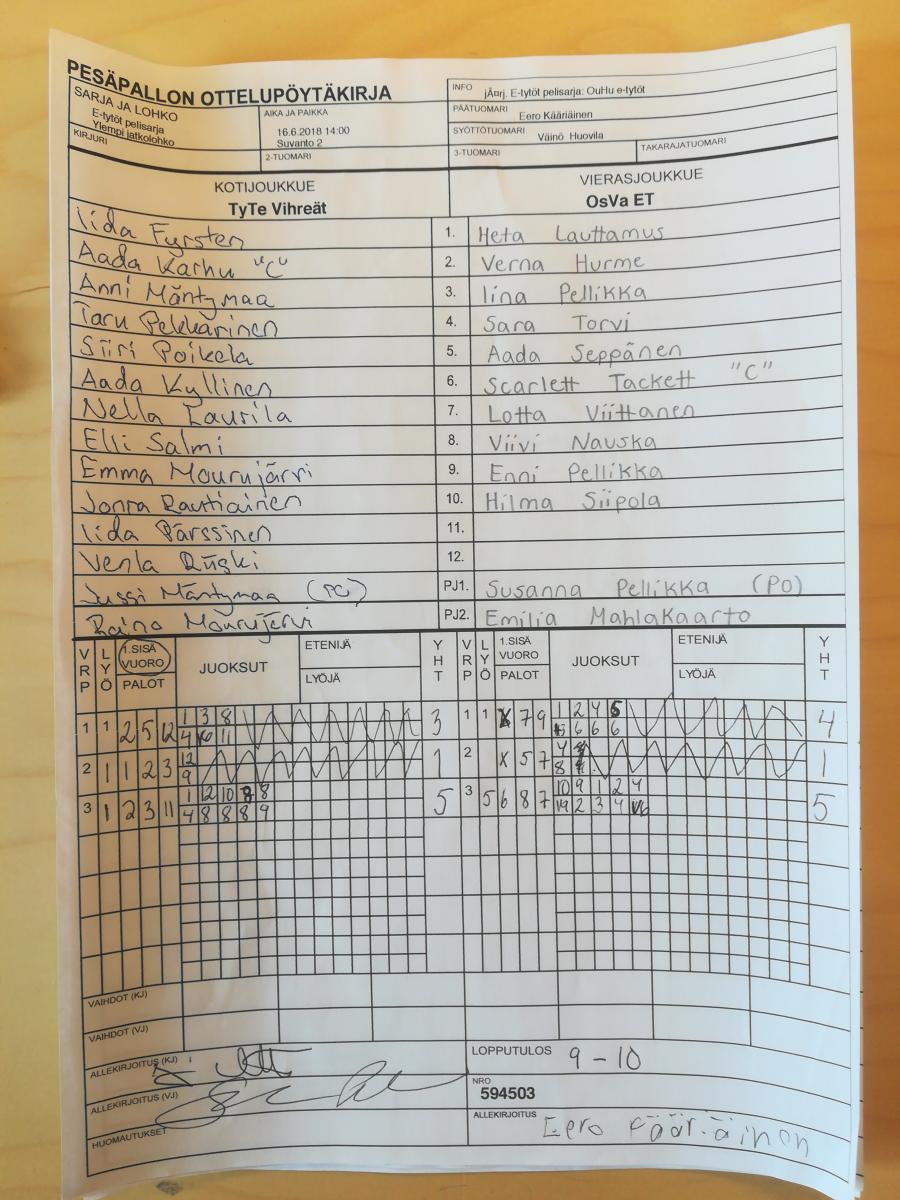 PESÄPALLON OTTELUPÖYTÄKIRJA
SARJA JA LOHKO
E-tytöt pelisarja
Ylempi jatkolohko
KIRJURI
AIKA JA PAIKKA
16.6.2018 14:00
Suvanto 2
2-TUOMARI
INFO jÃ¤rj. E-tytöt pelisarja: OuHu e-tytöt
PÄÄTUOMARI Eero Kääriäinen
SYÖTTÖTUOMARI Väinö Huovila
3-TUOMARI TAKARAJATUOMARI
KOTIJOUKKUE VIERASJOUKKUE
TyTe Vihreät OsVa ET
Iida Fyrsten 1. Heta Lauttamus
Aada Karhu "C" 2. Verna Hurme
Anni Mäntymaa 3. Iina Pellikka
Taru Pekkarinen 4. Sara Torvi
Siiri Poikela 5. Aada Seppänen
Aada Kyllinen 6. Scarlett Tackett "C"
Nella Laurila 7. Lotta Viittanen
Elli Salmi 8. Viivi Nauska
Emma Mourujärvi 9. Enni Pellikka
Jonna Rautiainen 10. Hilma Siipola
Iida Pärssinen 11.
Venla 12.
Jussi Mäntymaa (PO) PJ1. Susanna Pellikka (PO)
Raino Mourujärvi PJ2. Emilia Mahlakaarto
VRP LYÖ 1.SISÄ VUORO PALOT JUOKSUT ETENIJÄ LYÖJÄ YHT VRP LYÖ 1.SISÄ VUORO PALOT JUOKSUT ETENIJÄ LYÖJÄ YHT
1 1 2 5 12 1 3 8 3 1 1 X 7 9 1 2 4 5 4
4 11 6 6 6
2 1 1 2 3 12 1 2 X 5 7 4 1
9 8
3 1 2 3 11 1 2 10 8 5 3 5 6 8 7 10 9 1 2 4 5
4 8 8 8 9 2 3 4
VAIHDOT (KJ)
VAIHDOT (VJ)
ALLEKIRJOITUS (KJ) LOPPUTULOS 9 - 10
ALLEKIRJOITUS (VJ) NRO
594503
HUOMAUTUKSET ALLEKIRJOITUS Eero Kääriäinen